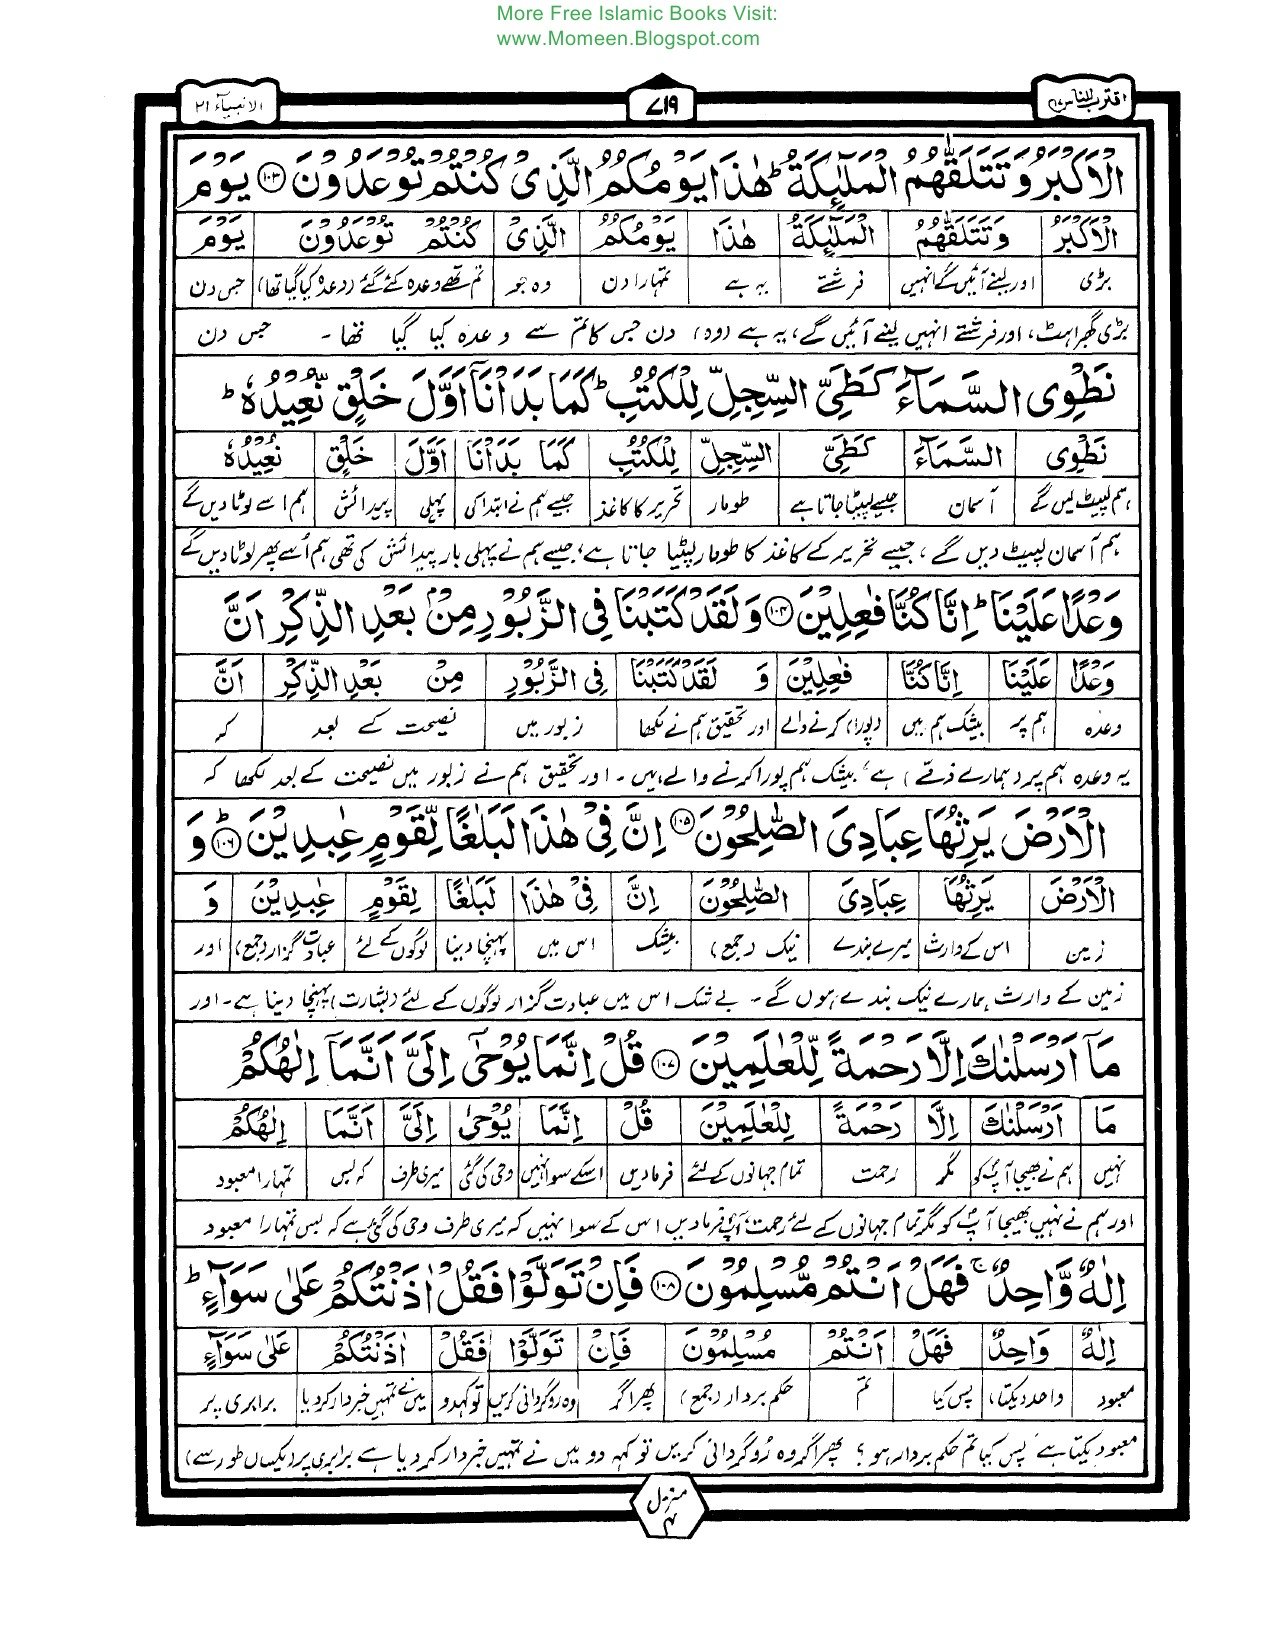 More Free Islamic Books Visit:
www.Momeen.Blogspot.com
اقترب للناس ۱۷
۷۱۹
الانبیاء ۲۱
الْاَكْبَرُ وَتَتَلَقّٰىهُمُ الْمَلٰٓئِكَةُ ؕ هٰذَا يَوْمُكُمُ الَّذِيْ كُنْتُمْ تُوْعَدُوْنَ ۝۱۰۳ يَوْمَ
الْاَكْبَرُ وَتَتَلَقّٰىهُمُ الْمَلٰٓئِكَةُ هٰذَا يَوْمُكُمُ الَّذِيْ كُنْتُمْ تُوْعَدُوْنَ يَوْمَ
بڑی اور لینے آئیں گے انہیں فرشتے یہ ہے تمہارا دن وہ جو تم تھے وعدہ کئے گئے (وعدہ کیا گیا تھا) جس دن
بڑی گھبراہٹ، اور فرشتے انہیں لینے آئیں گے، یہ ہے (وہ) دن جس کا تم سے وعدہ کیا گیا تھا۔ جس دن
نَطْوِي السَّمَآءَ كَطَيِّ السِّجِلِّ لِلْكُتُبِ ؕ كَمَا بَدَاْنَآ اَوَّلَ خَلْقٍ نُّعِيْدُهٗ ؕ
نَطْوِي السَّمَآءَ كَطَيِّ السِّجِلِّ لِلْكُتُبِ كَمَا بَدَاْنَا اَوَّلَ خَلْقٍ نُعِيْدُهٗ
ہم لپیٹ لیں گے آسمان جیسے لپیٹا جاتا ہے طومار تحریر کا کاغذ جیسے ہم نے ابتدا کی پہلی پیدائش ہم اسے لوٹا دیں گے
ہم آسمان لپیٹ دیں گے، جیسے تحریر کے کاغذ کا طومار لپٹیا جاتا ہے، جیسے ہم نے پہلی بار پیدائش کی تھی ہم اُسے پھر لوٹا دیں گے
وَعْدًا عَلَيْنَا ؕ اِنَّا كُنَّا فٰعِلِيْنَ ۝۱۰۴ وَلَقَدْ كَتَبْنَا فِي الزَّبُوْرِ مِنْۢ بَعْدِ الذِّكْرِ اَنَّ
وَعْدًا عَلَيْنَا اِنَّا كُنَّا فٰعِلِيْنَ وَ لَقَدْ كَتَبْنَا فِي الزَّبُوْرِ مِنْ بَعْدِ الذِّكْرِ اَنَّ
وعدہ ہم پر بیشک ہم ہیں (پورا) کرنے والے اور تحقیق ہم نے لکھا زبور میں نصیحت کے بعد کہ
یہ وعدہ ہم پر (ہمارے ذمّے) ہے، بیشک ہم پورا کرنے والے ہیں۔ اور تحقیق ہم نے زبور میں نصیحت کے بعد لکھا کہ
الْاَرْضَ يَرِثُهَا عِبَادِيَ الصّٰلِحُوْنَ ۝۱۰۵ اِنَّ فِيْ هٰذَا لَبَلٰغًا لِّقَوْمٍ عٰبِدِيْنَ ۝۱۰۶ؕ وَ
الْاَرْضَ يَرِثُهَا عِبَادِيَ الصّٰلِحُوْنَ اِنَّ فِيْ هٰذَا لَبَلٰغًا لِقَوْمٍ عٰبِدِيْنَ وَ
زمین اس کے وارث میرے بندے نیک (جمع) بیشک اس میں پہنچا دینا لوگوں کے لئے عبادت گزار (جمع) اور
زمین کے وارث ہمارے نیک بندے ہوں گے۔ بے شک اس میں عبادت گزار لوگوں کے لئے (بشارت) پہنچا دینا ہے۔ اور
مَآ اَرْسَلْنٰكَ اِلَّا رَحْمَةً لِّلْعٰلَمِيْنَ ۝۱۰۷ قُلْ اِنَّمَا يُوْحٰٓى اِلَيَّ اَنَّمَآ اِلٰهُكُمْ
مَا اَرْسَلْنٰكَ اِلَّا رَحْمَةً لِلْعٰلَمِيْنَ قُلْ اِنَّمَا يُوْحٰى اِلَيَّ اَنَّمَا اِلٰهُكُمْ
نہیں ہم نے بھیجا آپؐ کو مگر رحمت تمام جہانوں کے لئے فرما دیں اسکے سوا نہیں وحی کی گئی میری طرف کہ بس تمہارا معبود
اور ہم نے نہیں بھیجا آپؐ کو مگر تمام جہانوں کے لئے رحمت، آپؐ فرما دیں اس کے سوا نہیں کہ میری طرف وحی کی گئی ہے کہ بس تمہارا معبود
اِلٰهٌ وَّاحِدٌ ۚ فَهَلْ اَنْتُمْ مُّسْلِمُوْنَ ۝۱۰۸ فَاِنْ تَوَلَّوْا فَقُلْ اٰذَنْتُكُمْ عَلٰى سَوَآءٍ ؕ
اِلٰهٌ وَاحِدٌ فَهَلْ اَنْتُمْ مُسْلِمُوْنَ فَاِنْ تَوَلَّوْا فَقُلْ اٰذَنْتُكُمْ عَلٰى سَوَآءٍ
معبود واحد (یکتا) پس کیا تم حکم بردار (جمع) پھر اگر وہ روگردانی کریں تو کہدو میں نے تمہیں خبردار کر دیا برابری پر
معبود یکتا ہے، پس کیا تم حکم بردار ہو؟ پھر اگر وہ رُوگردانی کریں تو کہہ دو میں نے تمہیں خبردار کر دیا ہے برابری پر (یکساں طور سے)
منزل
۴